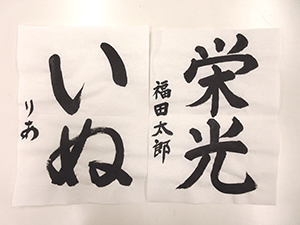 栄光
福田太郎
いぬ
りあ